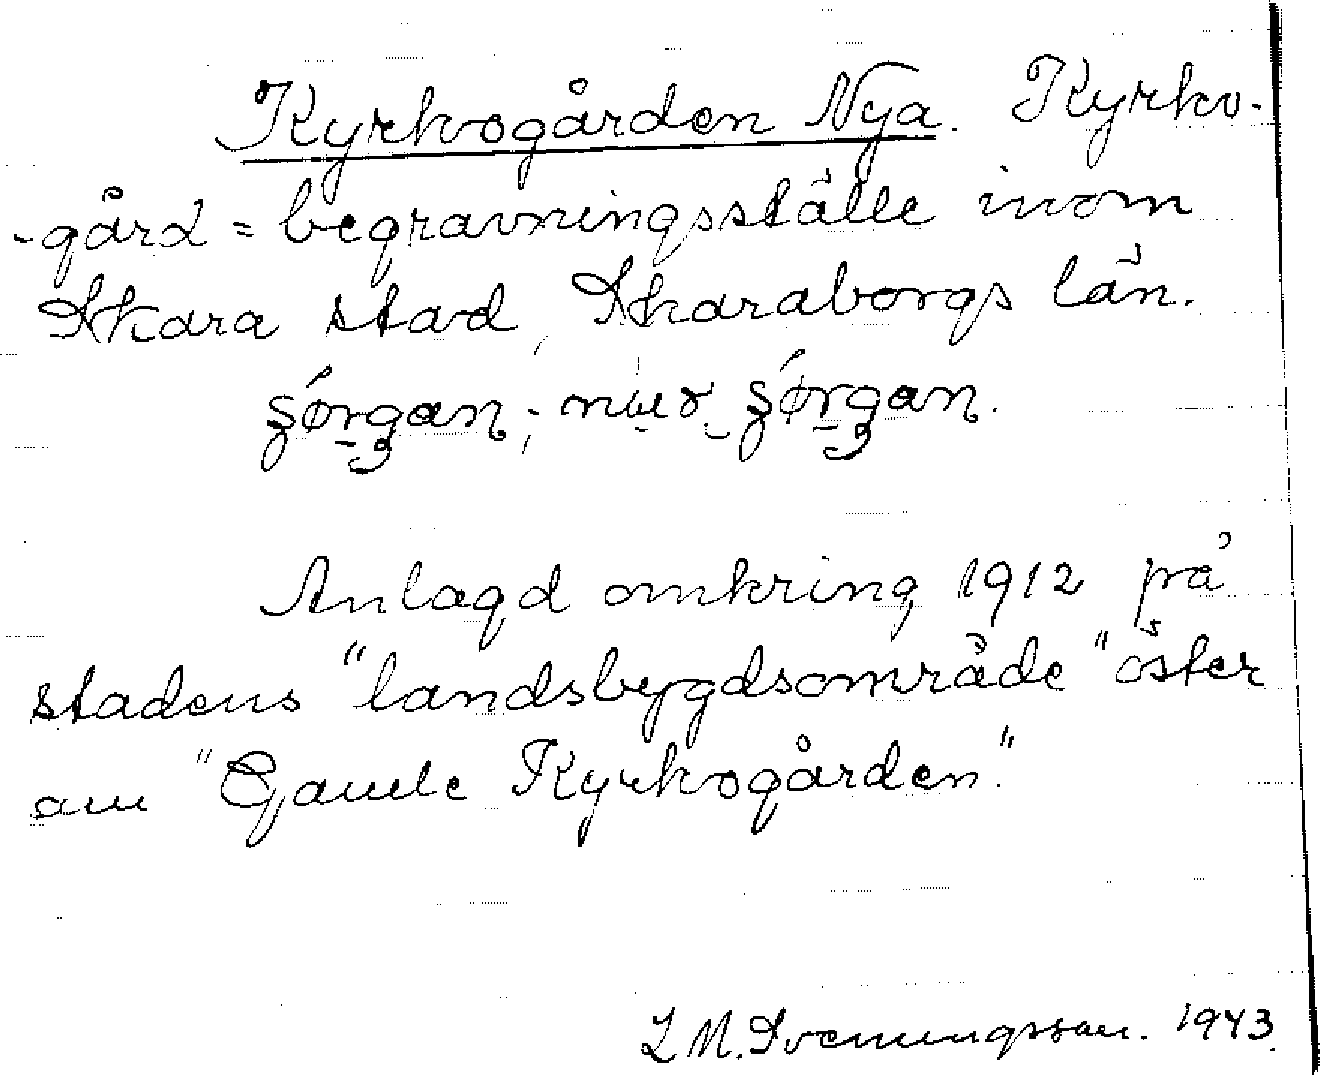 Kyrkogården Nya. Kyrko-
-gård = begravningsställe inom
Skara stad, Skaraborgs län.
Anlagd omkring 1912 på
stadens "landsbygdsområde" öster
om "Gamle Kyrkogården."
L M. Svenungsson. 1943.